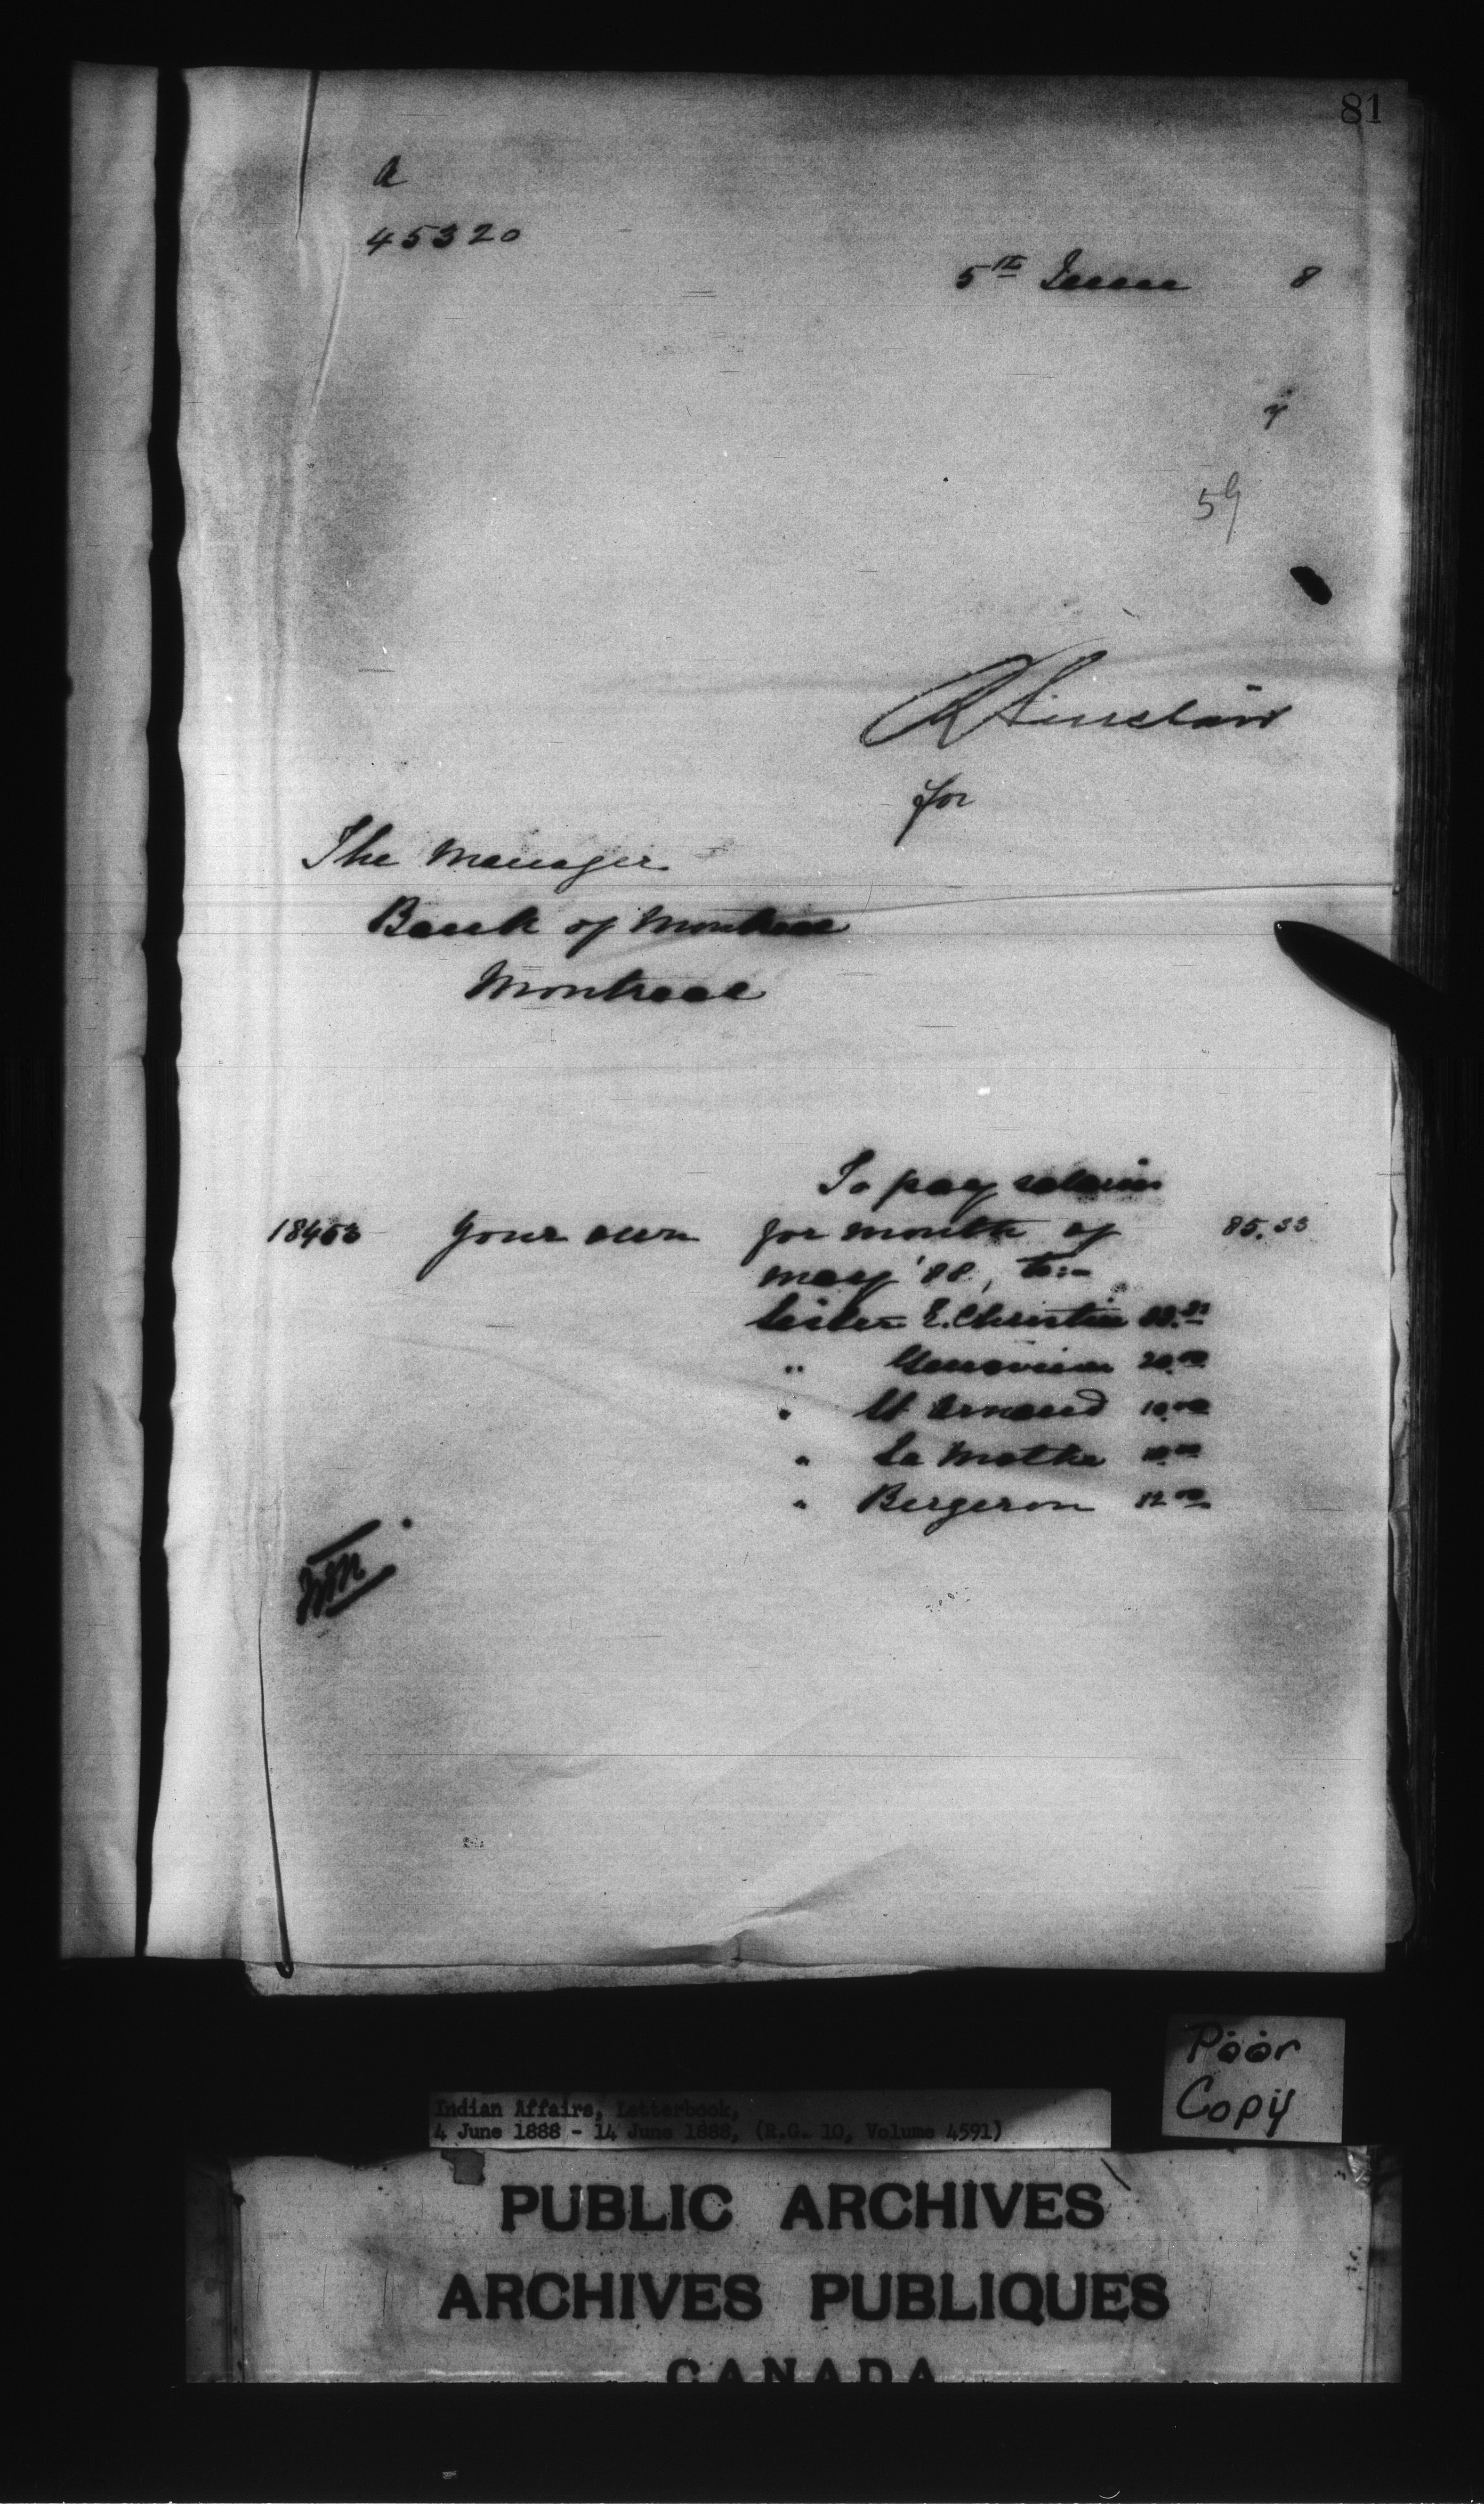 81
a
45320
5th June 8
y
59
R Sinclair
for
The Manager
Bank of Montreal
Montreal
To pay salaries
Your own for month of 85.33
May '88, to:-
Sister E. Christie
" 20.00
" St Arnaud 10.00
" La Mothe
" Bergeron 12.00
Poor
Copy
Indian Affairs, Letterbook,
4 June 1888 - 14 June 1888, (R.G. 10, Volume 4591)
PUBLIC ARCHIVES
ARCHIVES PUBLIQUES
CANADA